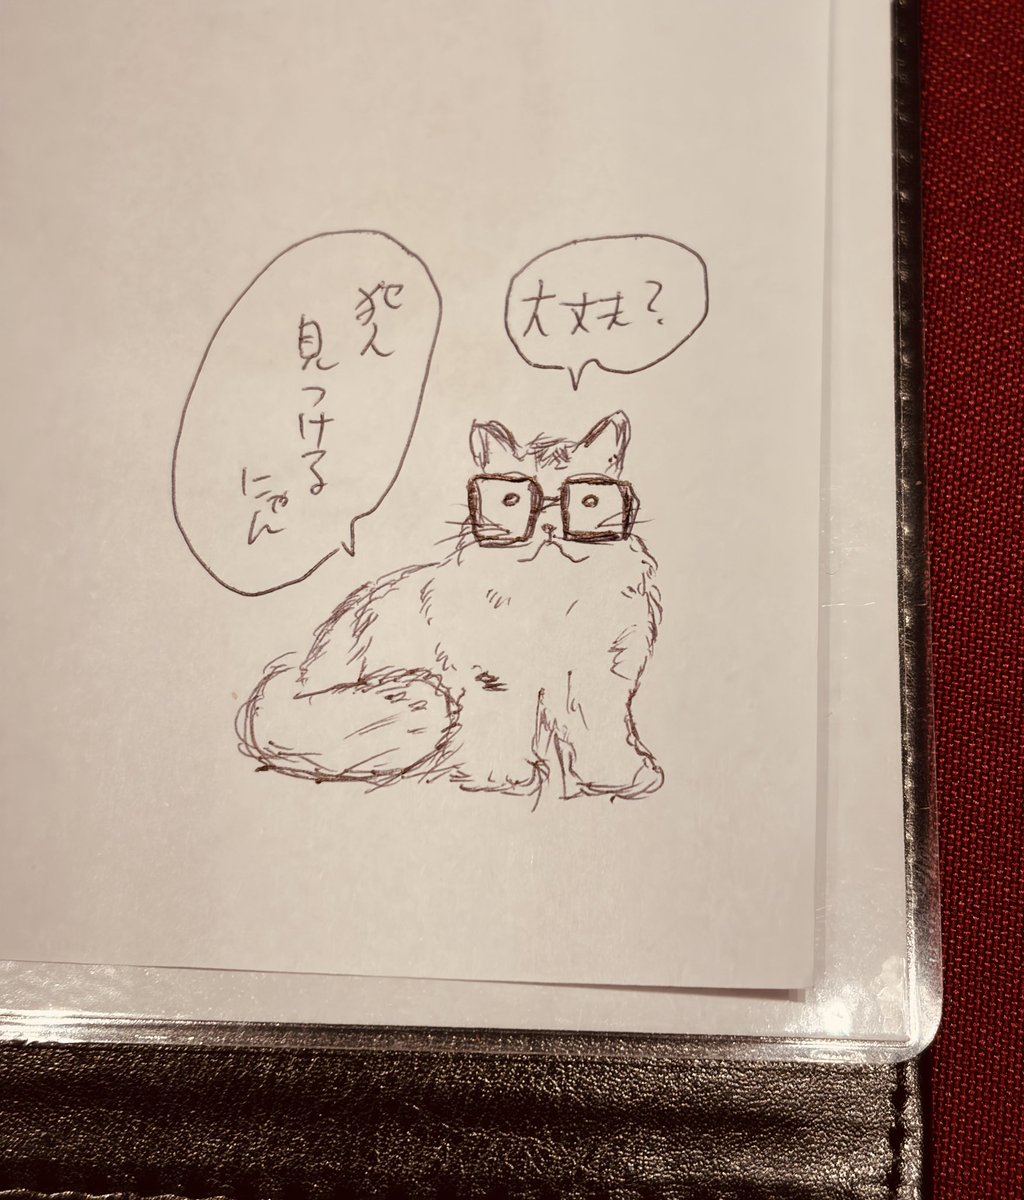 大丈夫?
犯人
見つける
にゃん